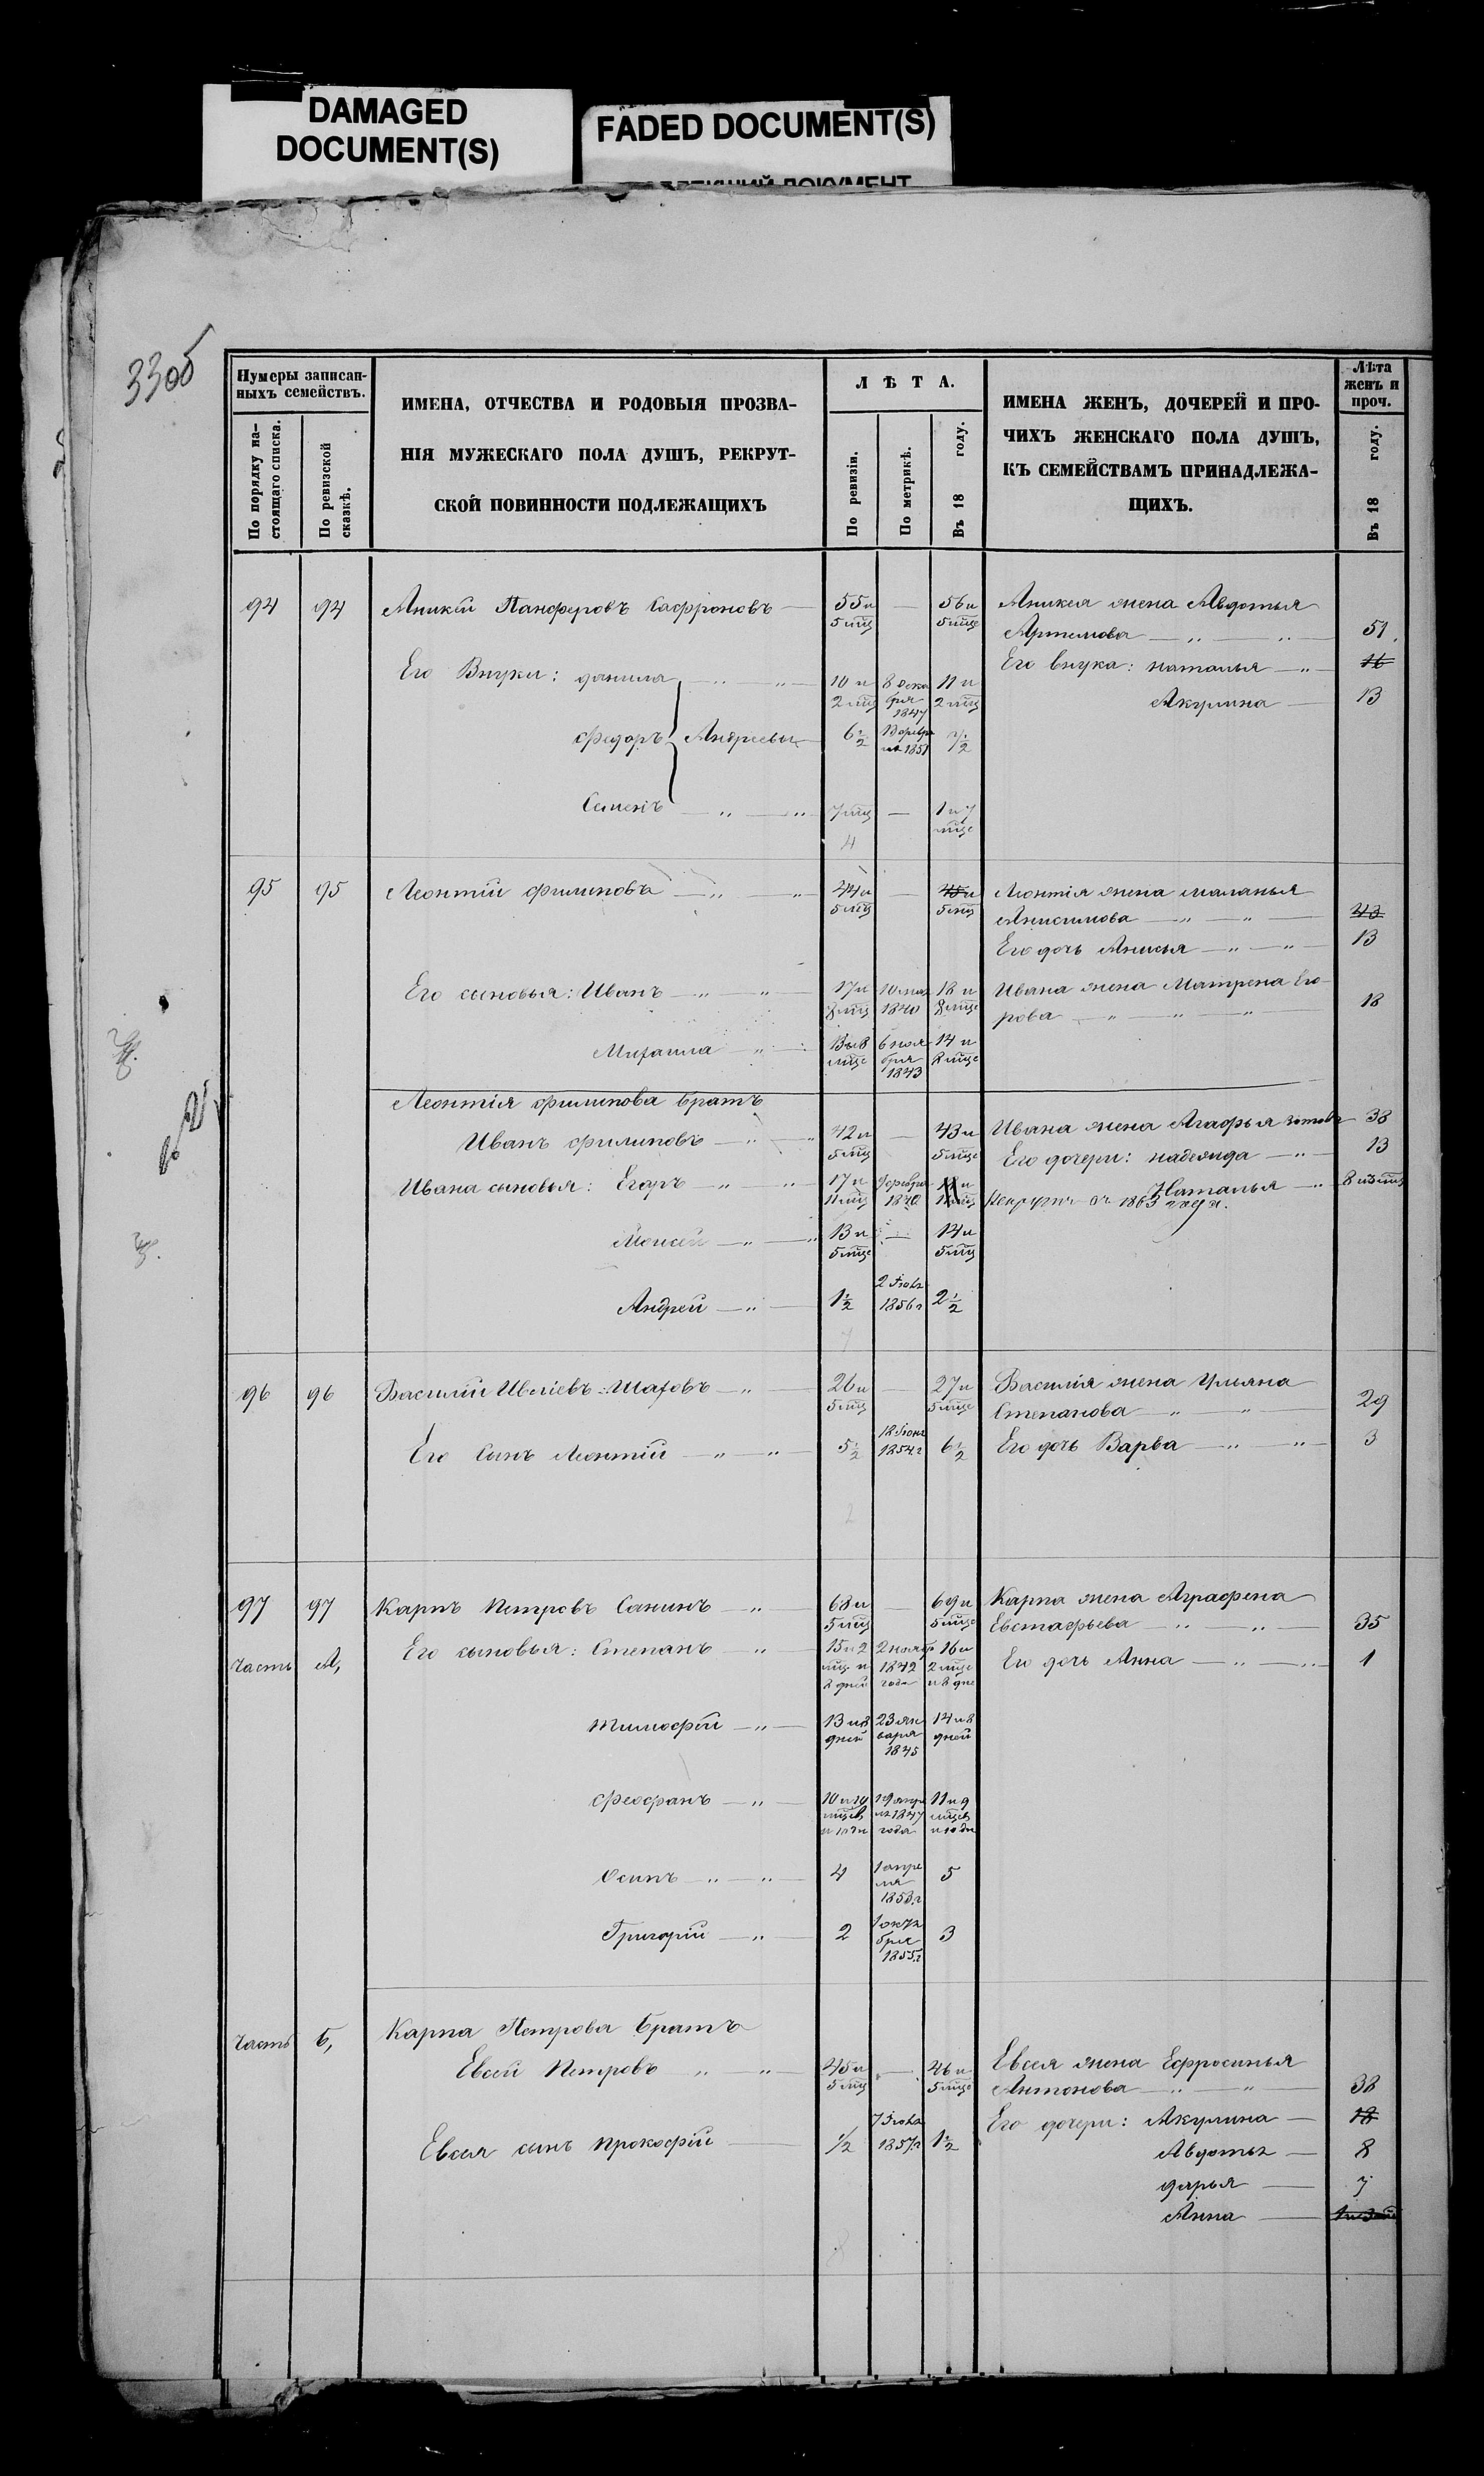 DAMAGED
DOCUMENT(S)
FADED DOCUMENT(S)
330б
Нумеры записан-
ныхъ семействъ.
По порядку на-
стоящаго списка.
По ревизской
сказкѣ.
ИМЕНА, ОТЧЕСТВА И РОДОВЫЯ ПРОЗВА-
НІЯ МУЖЕСКАГО ПОЛА ДУШЪ, РЕКРУТ-
СКОЙ ПОВИННОСТИ ПОДЛЕЖАЩИХЪ
ЛѢТА.
По ревизіи.
По метрикѣ.
Въ 18 году.
ИМЕНА ЖЕНЪ, ДОЧЕРЕЙ И ПРО-
ЧИХЪ ЖЕНСКАГО ПОЛА ДУШЪ,
КЪ СЕМЕЙСТВАМЪ ПРИНАДЛЕЖА-
ЩИХЪ.
Лѣта
женъ и
проч.
Въ 18 году.
94 94 Аникій Панферовъ Сафроновъ — 55 и 5 мцъ — 56 и 5 мцъ Аникея жена Авдотья
Артемова — „ — „ — 51
Его Внуки: данила — „ — 10 и 2 мцъ 8 дека бря 1847 11 и 2 мцъ Его внука: наталья — „ 16
Акулина — 13
федоръ Андреевы 6½ 13 февра 1851 7½
Семенъ — „ — „ 7 мцъ — 1 и 7 мцъ
4
95 95 Леонтій филиповъ — „ — „ 44 и 5 мцъ — 45 и 5 мцъ Леонтія жена маланья
Анисимова — „ — „ — 43
Его дочь Анисья — „ — „ — 13
Его сыновья: Иванъ — „ — „ 17 и 8 мцъ 10 мая 1840 18 и 8 мцъ Ивана жена Матрена Его-
рова — „ — „ — „ 18
Михаила — „ — 13 и 8 мцъ 6 ноя бря 1843 14 и 8 мцъ
Леонтія филипова братъ
Иванъ филиповъ — „ — „ 42 и 5 мцъ — 43 и 5 мцъ Ивана жена Агафья зотова 38
Его дочери: надежда — „ — 13
Ивана сыновья: Егаръ — „ — „ 17 и 11 мцъ февра 1840 11 мцъ Наталья — „ 8
1863 года.
Моисей — „ — „ 13 и 5 мцъ — 14 и 5 мцъ
Андрей — „ — 1½ 2 Іюля 1856 г 2½
7
96 96 Василій Ивліевъ Шаховъ — „ — 26 и 5 мцъ — 27 и 5 мцъ Василія жена Ульяна
Степанова — „ — „ — 29
Его Сынъ Леонтій — „ — „ 5½ 18 Іюня 6½ Его дочь Варва — „ — „ — 3
2
97 97 Карпъ Петровъ Санинъ — „ — 68 и 5 мцъ — 69 и 5 мцъ Карпа жена Аграфена
Евстафьева — „ — „ — 35
часть А, Его сыновья: Степанъ — „ 15 и 2 мцъ и 8 дней 2 ноя 1842 года 16 и 2 мцъ и 8 дне Его дочь Анна — „ — „ 1
тимофей — „ — 13 и 8 дней 23 ян варя 1845 14 и 8 дней
феофанъ — „ — 10 и 19 апре 1847 года 11 и 9
Осипъ — „ — „ 4 1 апре ля 1853 г 5
Григорій — „ — 2 1 октя бря 1855 г 3
часть Б, Карпа Петрова Братъ
Евсей Петровъ „ — „ 45 и 5 мцъ — 46 и 5 мцъ Евсея жена Ефросинья
Антонова — „ — „ — 38
Евсея сынъ прокофій — ½ 7 Іюля 1857 г 1½ Его дочери: Акулина — 18
Авдотья — 8
дарья — 7
Анна —
8